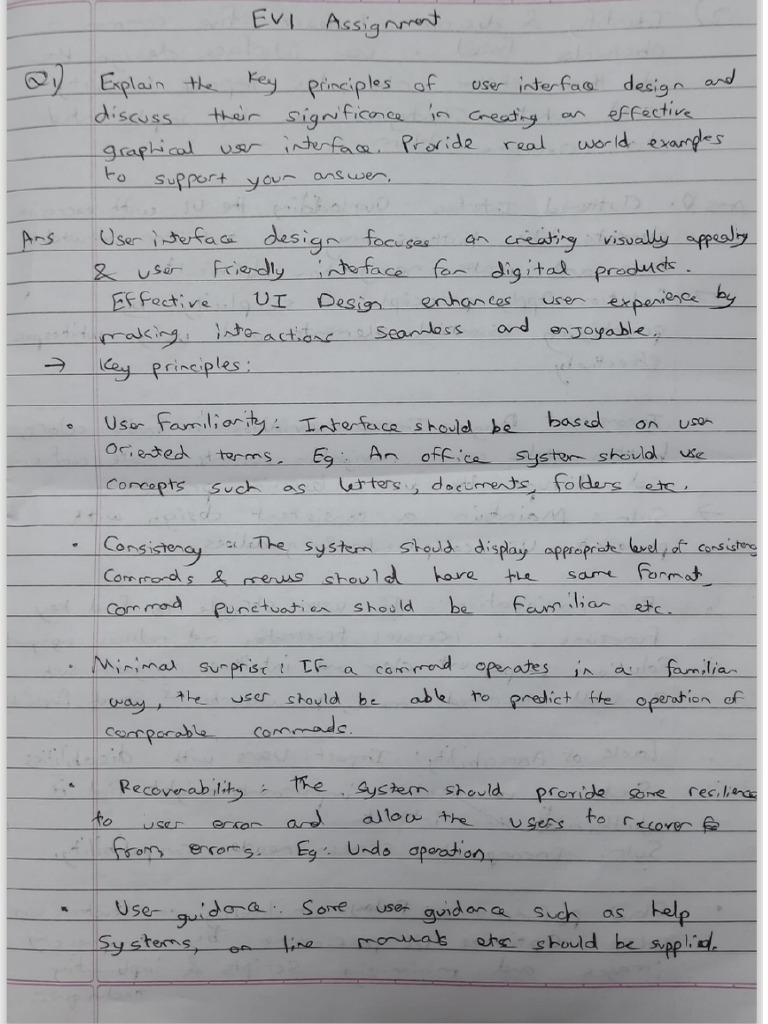 EVI Assignment
Q1) Explain the key principles of user interface design and
discuss their significance in creating an effective
graphical user interface. Provide real world examples
to support your answer.
Ans User interface design focuses on creating visually appealing
& user friendly interface for digital products.
Effective UI Design enhances user experience by
making interactions seamless and enjoyable.
→ Key principles:
• User Familiarity: Interface should be based on user
oriented terms. Eg: An office system should use
concepts such as letters, documents, folders etc.
• Consistency: The system should display appropriate level of consistency
Commands & menus should have the same format,
command punctuation should be familiar etc.
• Minimal surprise: If a command operates in a familiar
way, the user should be able to predict the operation of
comparable commads.
• Recoverability: The system should provide some resilience
to user error and allow the users to recover
from errors. Eg: Undo operation.
• User guidance: Some user guidance such as help
Systems, on line manuals etc should be supplied.